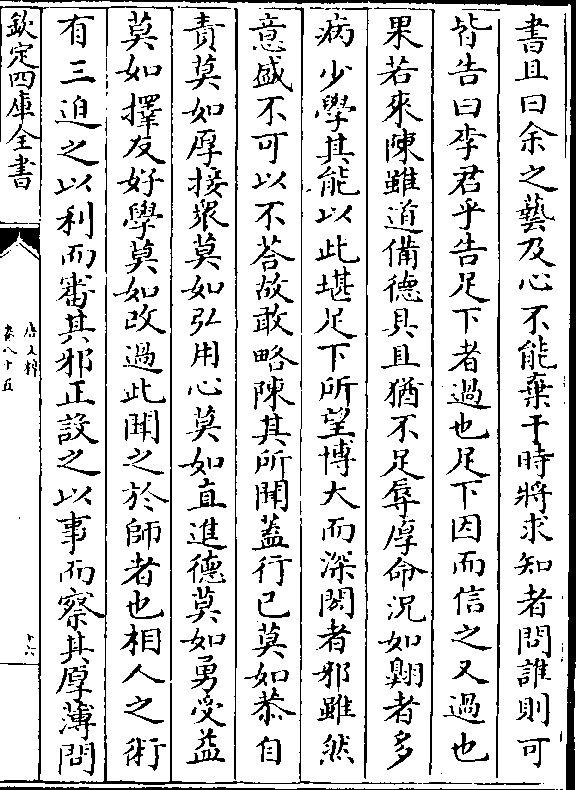 書且曰余之藝及心不能棄于時將求知者問誰則可
皆告曰李君乎告足下者過也足下因而信之又過也
果若來陳雖道備德具且猶不足辱厚命況如翺者多
病少學其能以此堪足下所望博大而深閎者邪雖然
意盛不可以不荅故敢略陳其所聞蓋行己莫如恭自
責莫如厚接衆莫如弘用心莫如直進德莫如勇受益
莫如擇友好學莫如改過此聞之於師者也相人之術
有三迫之以利而審其邪正設之以事而察其厚薄問
欽定四庫全書
唐文粹
卷八十五
十六